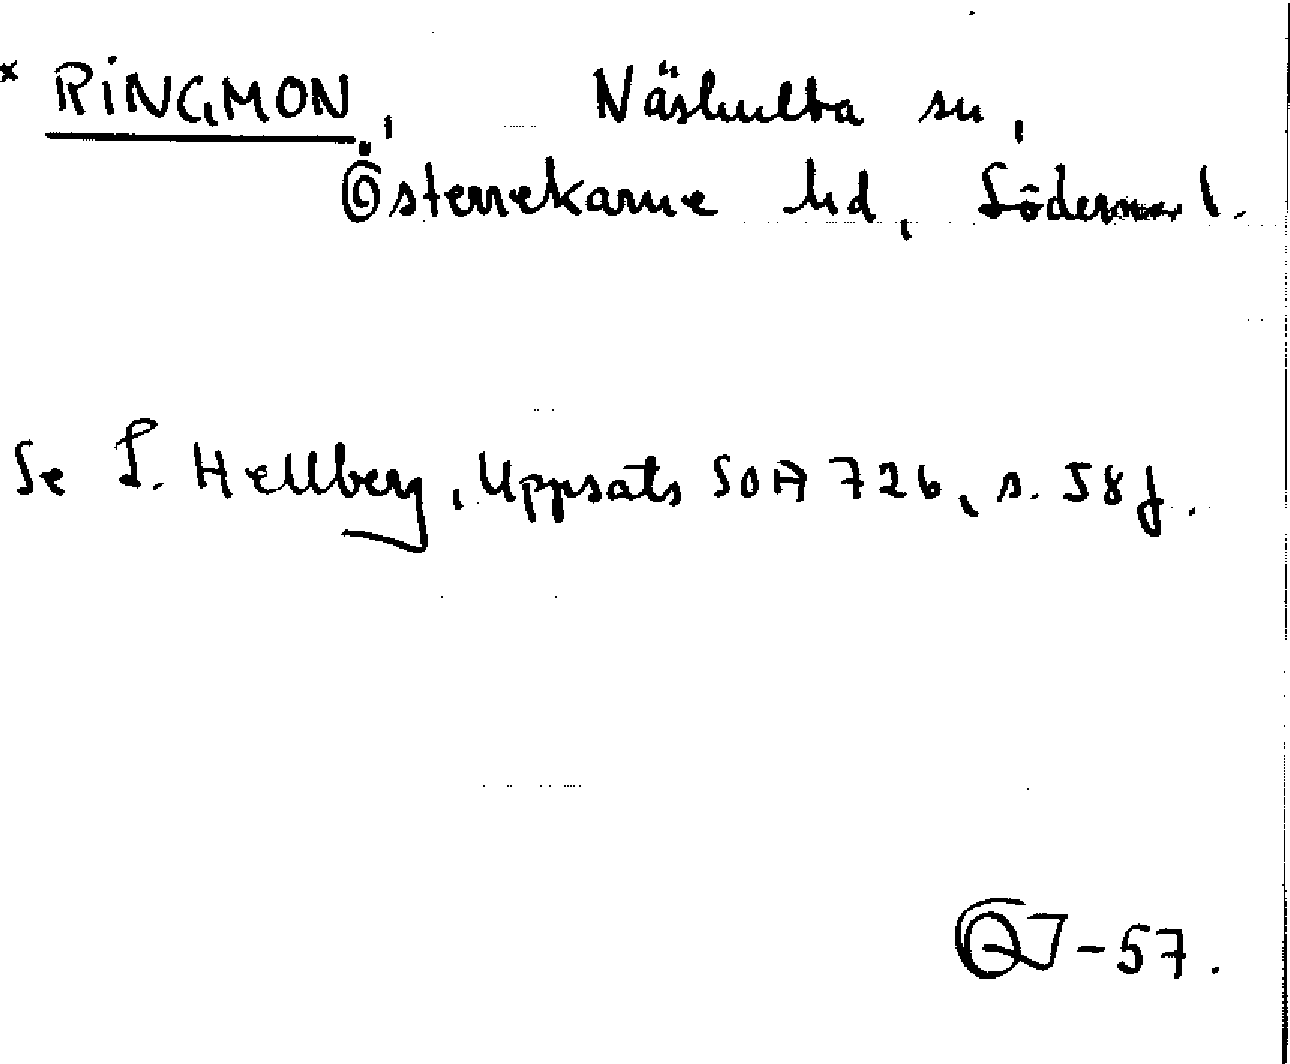 * RINGMON, Näshulta sn,
Österrekarne hd, Söderml.
Se L. Hellberg, Uppsats SOA 726, s. 58 f.
-57.